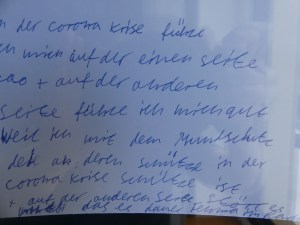 n der corona krise fühle
ch mich auf der einen seite
ao + auf der anderen
seite fühle ich mich gut
weil ich mit dem Mundschutz
de an deren schütze in der
corona krise schütze ist
+ auf der anderen seite
das es